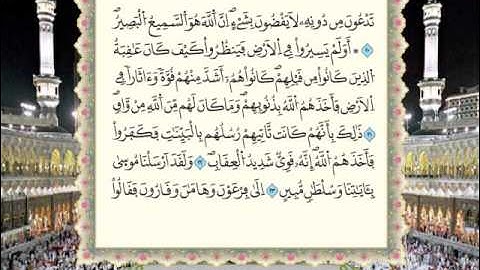 تَدْعُونَ مِن دُونِهِۦ لَا يَقْضُونَ بِشَىْءٍ إِنَّ ٱللَّهَ هُوَ ٱلسَّمِيعُ ٱلْبَصِيرُ
۞ أَوَلَمْ يَسِيرُوا۟ فِى ٱلْأَرْضِ فَيَنظُرُوا۟ كَيْفَ كَانَ عَٰقِبَةُ
ٱلَّذِينَ كَانُوا۟ مِن قَبْلِهِمْ كَانُوا۟ هُمْ أَشَدَّ مِنْهُمْ قُوَّةً وَءَاثَارًا فِى
ٱلْأَرْضِ فَأَخَذَهُمُ ٱللَّهُ بِذُنُوبِهِمْ وَمَا كَانَ لَهُم مِّنَ ٱللَّهِ مِن وَاقٍ
ذَٰلِكَ بِأَنَّهُمْ كَانَت تَّأْتِيهِمْ رُسُلُهُم بِٱلْبَيِّنَٰتِ فَكَفَرُوا۟
فَأَخَذَهُمُ ٱللَّهُ إِنَّهُۥ قَوِىٌّ شَدِيدُ ٱلْعِقَابِ وَلَقَدْ أَرْسَلْنَا مُوسَىٰ
بِـَٔايَٰتِنَا وَسُلْطَٰنٍ مُّبِينٍ إِلَىٰ فِرْعَوْنَ وَهَٰمَٰنَ وَقَٰرُونَ فَقَالُوا۟